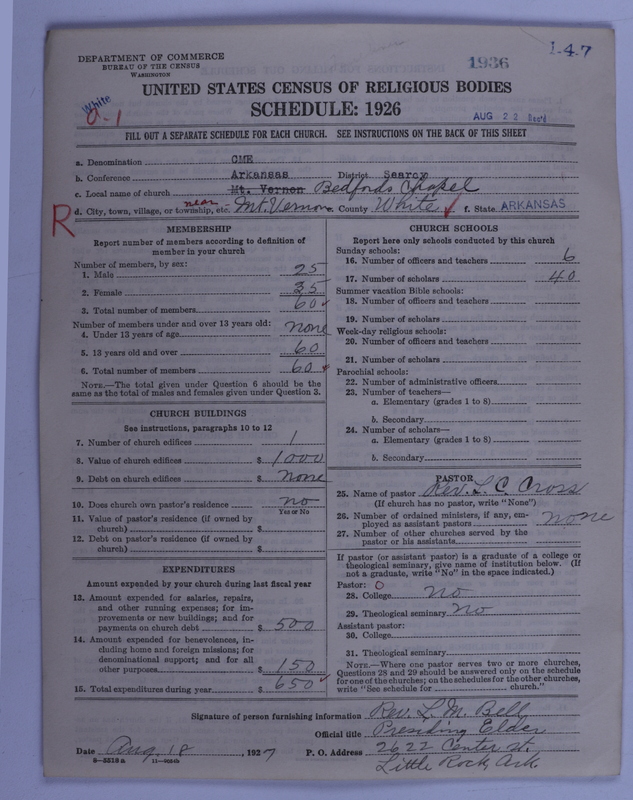 DEPARTMENT OF COMMERCE
BUREAU OF THE CENSUS
WASHINGTON
1936
1-4-7
UNITED STATES CENSUS OF RELIGIOUS BODIES
SCHEDULE: 1926
White
a-1
AUG 22 Rec'd
FILL OUT A SEPARATE SCHEDULE FOR EACH CHURCH. SEE INSTRUCTIONS ON THE BACK OF THIS SHEET
a. Denomination CME
b. Conference Arkansas District Searcy
c. Local name of church Mt. Vernon Bedfords Chapel
R
d. City, town, village, or township, etc. near Mt. Vernon e. County White f. State ARKANSAS
MEMBERSHIP
Report number of members according to definition of
member in your church
Number of members, by sex:
1. Male 25
2. Female 35
3. Total number of members 60
Number of members under and over 13 years old:
4. Under 13 years of age none
5. 13 years old and over 60
6. Total number of members 60
NOTE.—The total given under Question 6 should be the
same as the total of males and females given under Question 3.
CHURCH BUILDINGS
See instructions, paragraphs 10 to 12
7. Number of church edifices 1
8. Value of church edifices $ 1000
9. Debt on church edifices $ none
10. Does church own pastor's residence no
Yes or No
11. Value of pastor's residence (if owned by
church) $
12. Debt on pastor's residence (if owned by
church) $
EXPENDITURES
Amount expended by your church during last fiscal year
13. Amount expended for salaries, repairs,
and other running expenses; for im-
provements or new buildings; and for
payments on church debt $ 500
14. Amount expended for benevolences, in-
cluding home and foreign missions; for
denominational support; and for all
other purposes $ 150
15. Total expenditures during year $ 650
CHURCH SCHOOLS
Report here only schools conducted by this church
Sunday schools:
16. Number of officers and teachers 6
17. Number of scholars 40
Summer vacation Bible schools:
18. Number of officers and teachers
19. Number of scholars
Week-day religious schools:
20. Number of officers and teachers
21. Number of scholars
Parochial schools:
22. Number of administrative officers
23. Number of teachers—
a. Elementary (grades 1 to 8)
b. Secondary
24. Number of scholars—
a. Elementary (grades 1 to 8)
b. Secondary
PASTOR
25. Name of pastor Rev. L. C. Cross
(If church has no pastor, write "None")
26. Number of ordained ministers, if any, em-
ployed as assistant pastors none
27. Number of other churches served by the
pastor or his assistants
If pastor (or assistant pastor) is a graduate of a college or
theological seminary, give name of institution below. (If
not a graduate, write "No" in the space indicated.)
Pastor: 0
28. College no
29. Theological seminary no
Assistant pastor:
30. College
31. Theological seminary
NOTE.—Where one pastor serves two or more churches,
Questions 28 and 29 should be answered only on the schedule
for one of the churches; on the schedules for the other churches,
write "See schedule for church."
Signature of person furnishing information Rev. L. M. Bell
Official title Presiding Elder
Date Aug. 18, 1927 P. O. Address 2622 Center st,
Little Rock, Ark.
8-5318 a